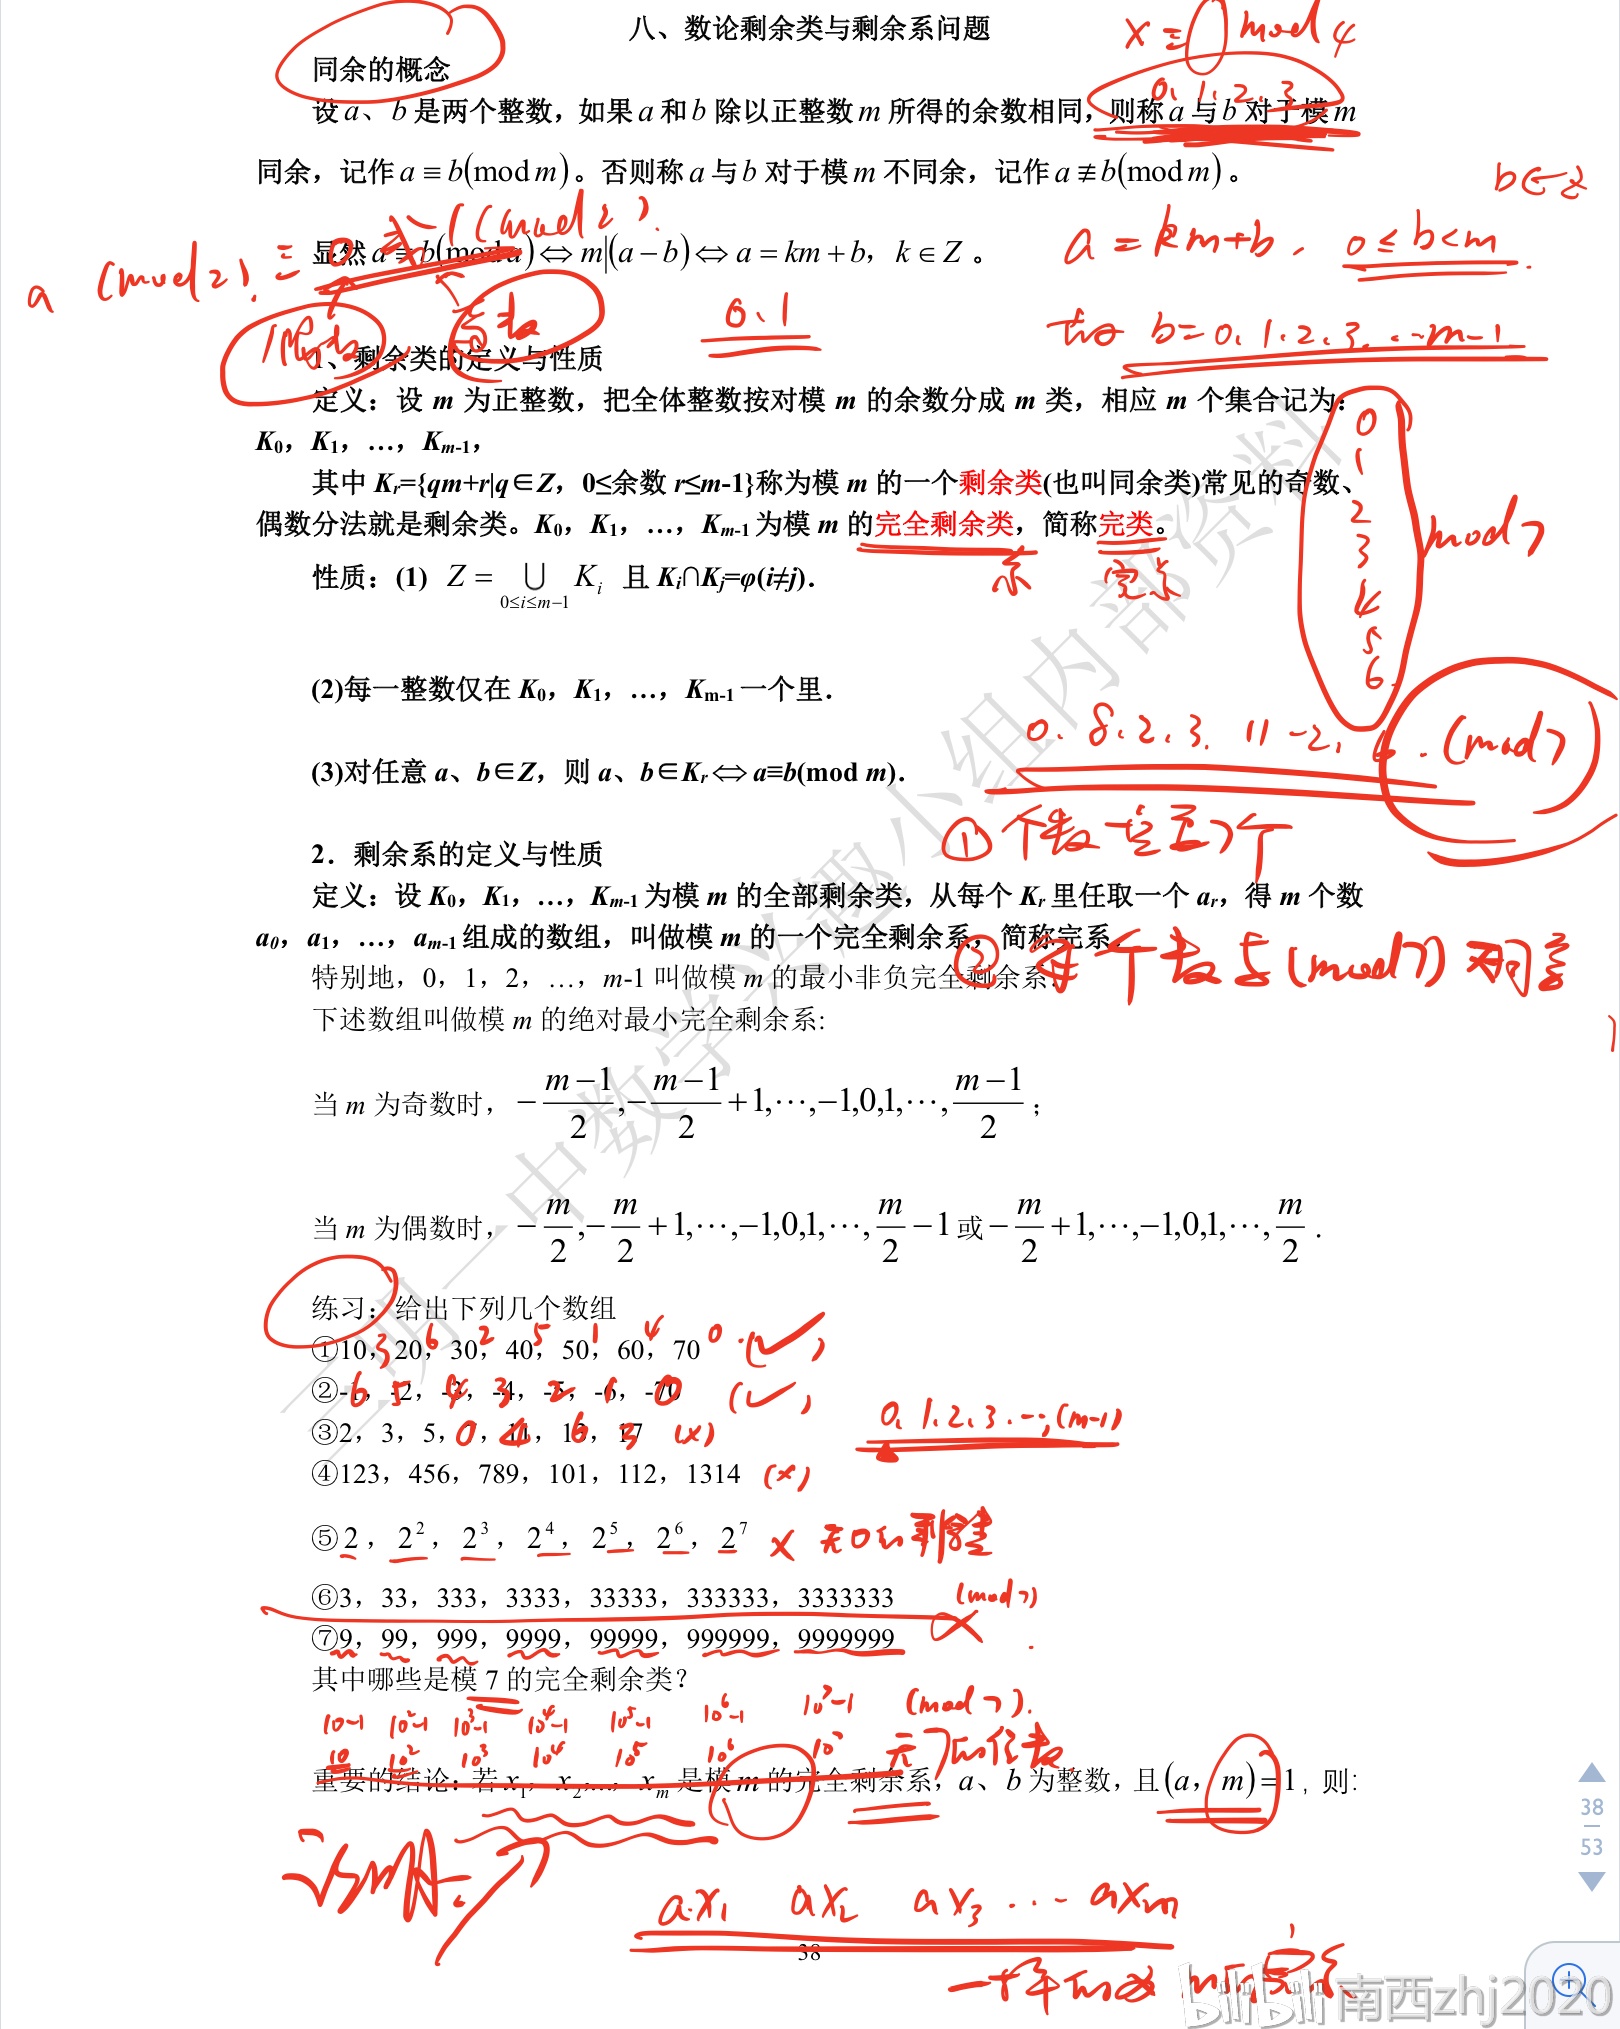 八、数论剩余类与剩余系问题
x ≡ mod 4
同余的概念
0、1、2、3
设a、b是两个整数，如果a和b除以正整数m所得的余数相同，则称a与b对于模m
同余，记作a≡b(mod m)。否则称a与b对于模m不同余，记作a≢b(mod m)。
b∈Z
显然a≡b(mod a)⇔m|(a−b)⇔a=km+b，k∈Z。
a=km+b，0≤b<m
a (mod 2) ≡ 0 或 1 (mod 2)
偶数 奇数
0、1
b=0、1、2、3、…m-1
1、剩余类的定义与性质
定义：设 m 为正整数，把全体整数按对模 m 的余数分成 m 类，相应 m 个集合记为：
K0，K1，…，Km-1，
其中 Kr={qm+r|q∈Z，0≤余数 r≤m-1}称为模 m 的一个剩余类(也叫同余类)常见的奇数、
偶数分法就是剩余类。K0，K1，…，Km-1为模 m 的完全剩余类，简称完类。
系 完系
0
1
2
3
4
5
6
mod 7
性质：(1) Z = ∪ Ki 且 Ki∩Kj=φ(i≠j)．
0≤i≤m−1
(2)每一整数仅在 K0，K1，…，Km-1一个里．
0、8、2、3、11 -2、6 (mod 7)
(3)对任意 a、b∈Z，则 a、b∈Kr⇔a≡b(mod m)．
① 个数一定是7个
2．剩余系的定义与性质
定义：设 K0，K1，…，Km-1为模 m 的全部剩余类，从每个 Kr里任取一个 ar，得 m 个数
a0，a1，…，am-1组成的数组，叫做模 m 的一个完全剩余系，简称完系．
② 每个数与(mod 7)不同余
特别地，0，1，2，…，m-1 叫做模 m 的最小非负完全剩余系．
下述数组叫做模 m 的绝对最小完全剩余系:
当 m 为奇数时，−(m−1)/2,−(m−1)/2+1,⋯,−1,0,1,⋯,(m−1)/2；
当 m 为偶数时，−m/2,−m/2+1,⋯,−1,0,1,⋯,m/2−1或−m/2+1,⋯,−1,0,1,⋯,m/2．
练习：给出下列几个数组
3 6 2 5 1 4 0 (✓)
①10，20，30，40，50，60，70
②-1，-2，-3，-4，-5，-6，-70
6 5 4 3 2 1 0 (✓)
③2，3，5，7，11，13，17
0 4 6 3 (×)
0、1、2、3…，(m-1)
④123，456，789，101，112，1314 (×)
⑤2，2²，2³，2⁴，2⁵，2⁶，2⁷ × 无0的剩余类
⑥3，33，333，3333，33333，333333，3333333 (mod 7)
⑦9，99，999，9999，99999，999999，9999999 ×
其中哪些是模 7 的完全剩余类？
10-1 10²-1 10³-1 10⁴-1 10⁵-1 10⁶-1 10⁷-1 (mod 7)
10 10² 10³ 10⁴ 10⁵ 10⁶ 10⁷ 无7的倍数
重要的结论：若x1，x2,…，xm是模m的完全剩余系，a、b为整数，且(a，m)=1，则：
ax1 ax2 ax3 … axm
38
38
53
bilibili 南西zhj2020
三明一中数学兴趣小组内部资料